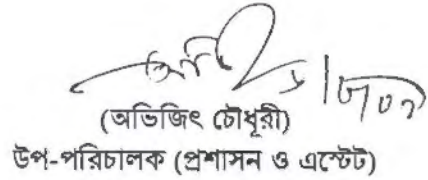 (অভিজিৎ চৌধুরী)
উপ-পরিচালক (প্রশাসন ও এস্টেট)